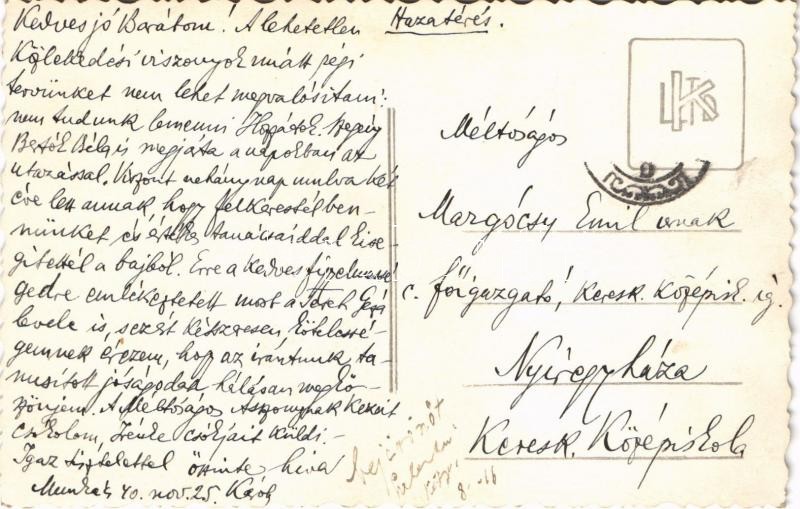 Kedves jó Barátom! A lehetetlen
Közlekedési viszonyok miatt régi
tervünket nem lehet megvalósítani:
nem tudunk lemenni Hozzátok. Szegény
Bertók Béla is megjárta a napokban az
utazással. Viszont néhány nap mulva két
éve lett annak, hogy felkerestél ben-
nünket és értékes tanácsaiddal kise-
gitettél a bajból. Erre a kedves figyelmessé-
gedre emlékeztetett most a Géza
levele is, s ezért kétszeresen kötelessé-
gemnek érezem, hogy az irántunk ta-
nusitott jóságodat hálásan megkö-
szönjem. A Méltóságos Asszonynak kezeit
csókolom, csókjait küldi.-
Igaz tisztelettel őszinte hiva
Munkács 40. nov. 25. Károly
Hazatérés.
Méltóságos
Margócsy Emil urnak
c. főigazgató, Keresk. Középisk. ig.
Nyiregyháza
Keresk. Középiskola
8.